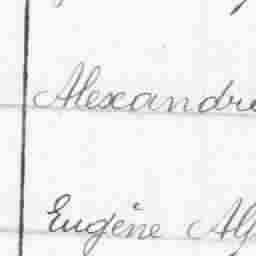 Alexandre
Eugène Alf